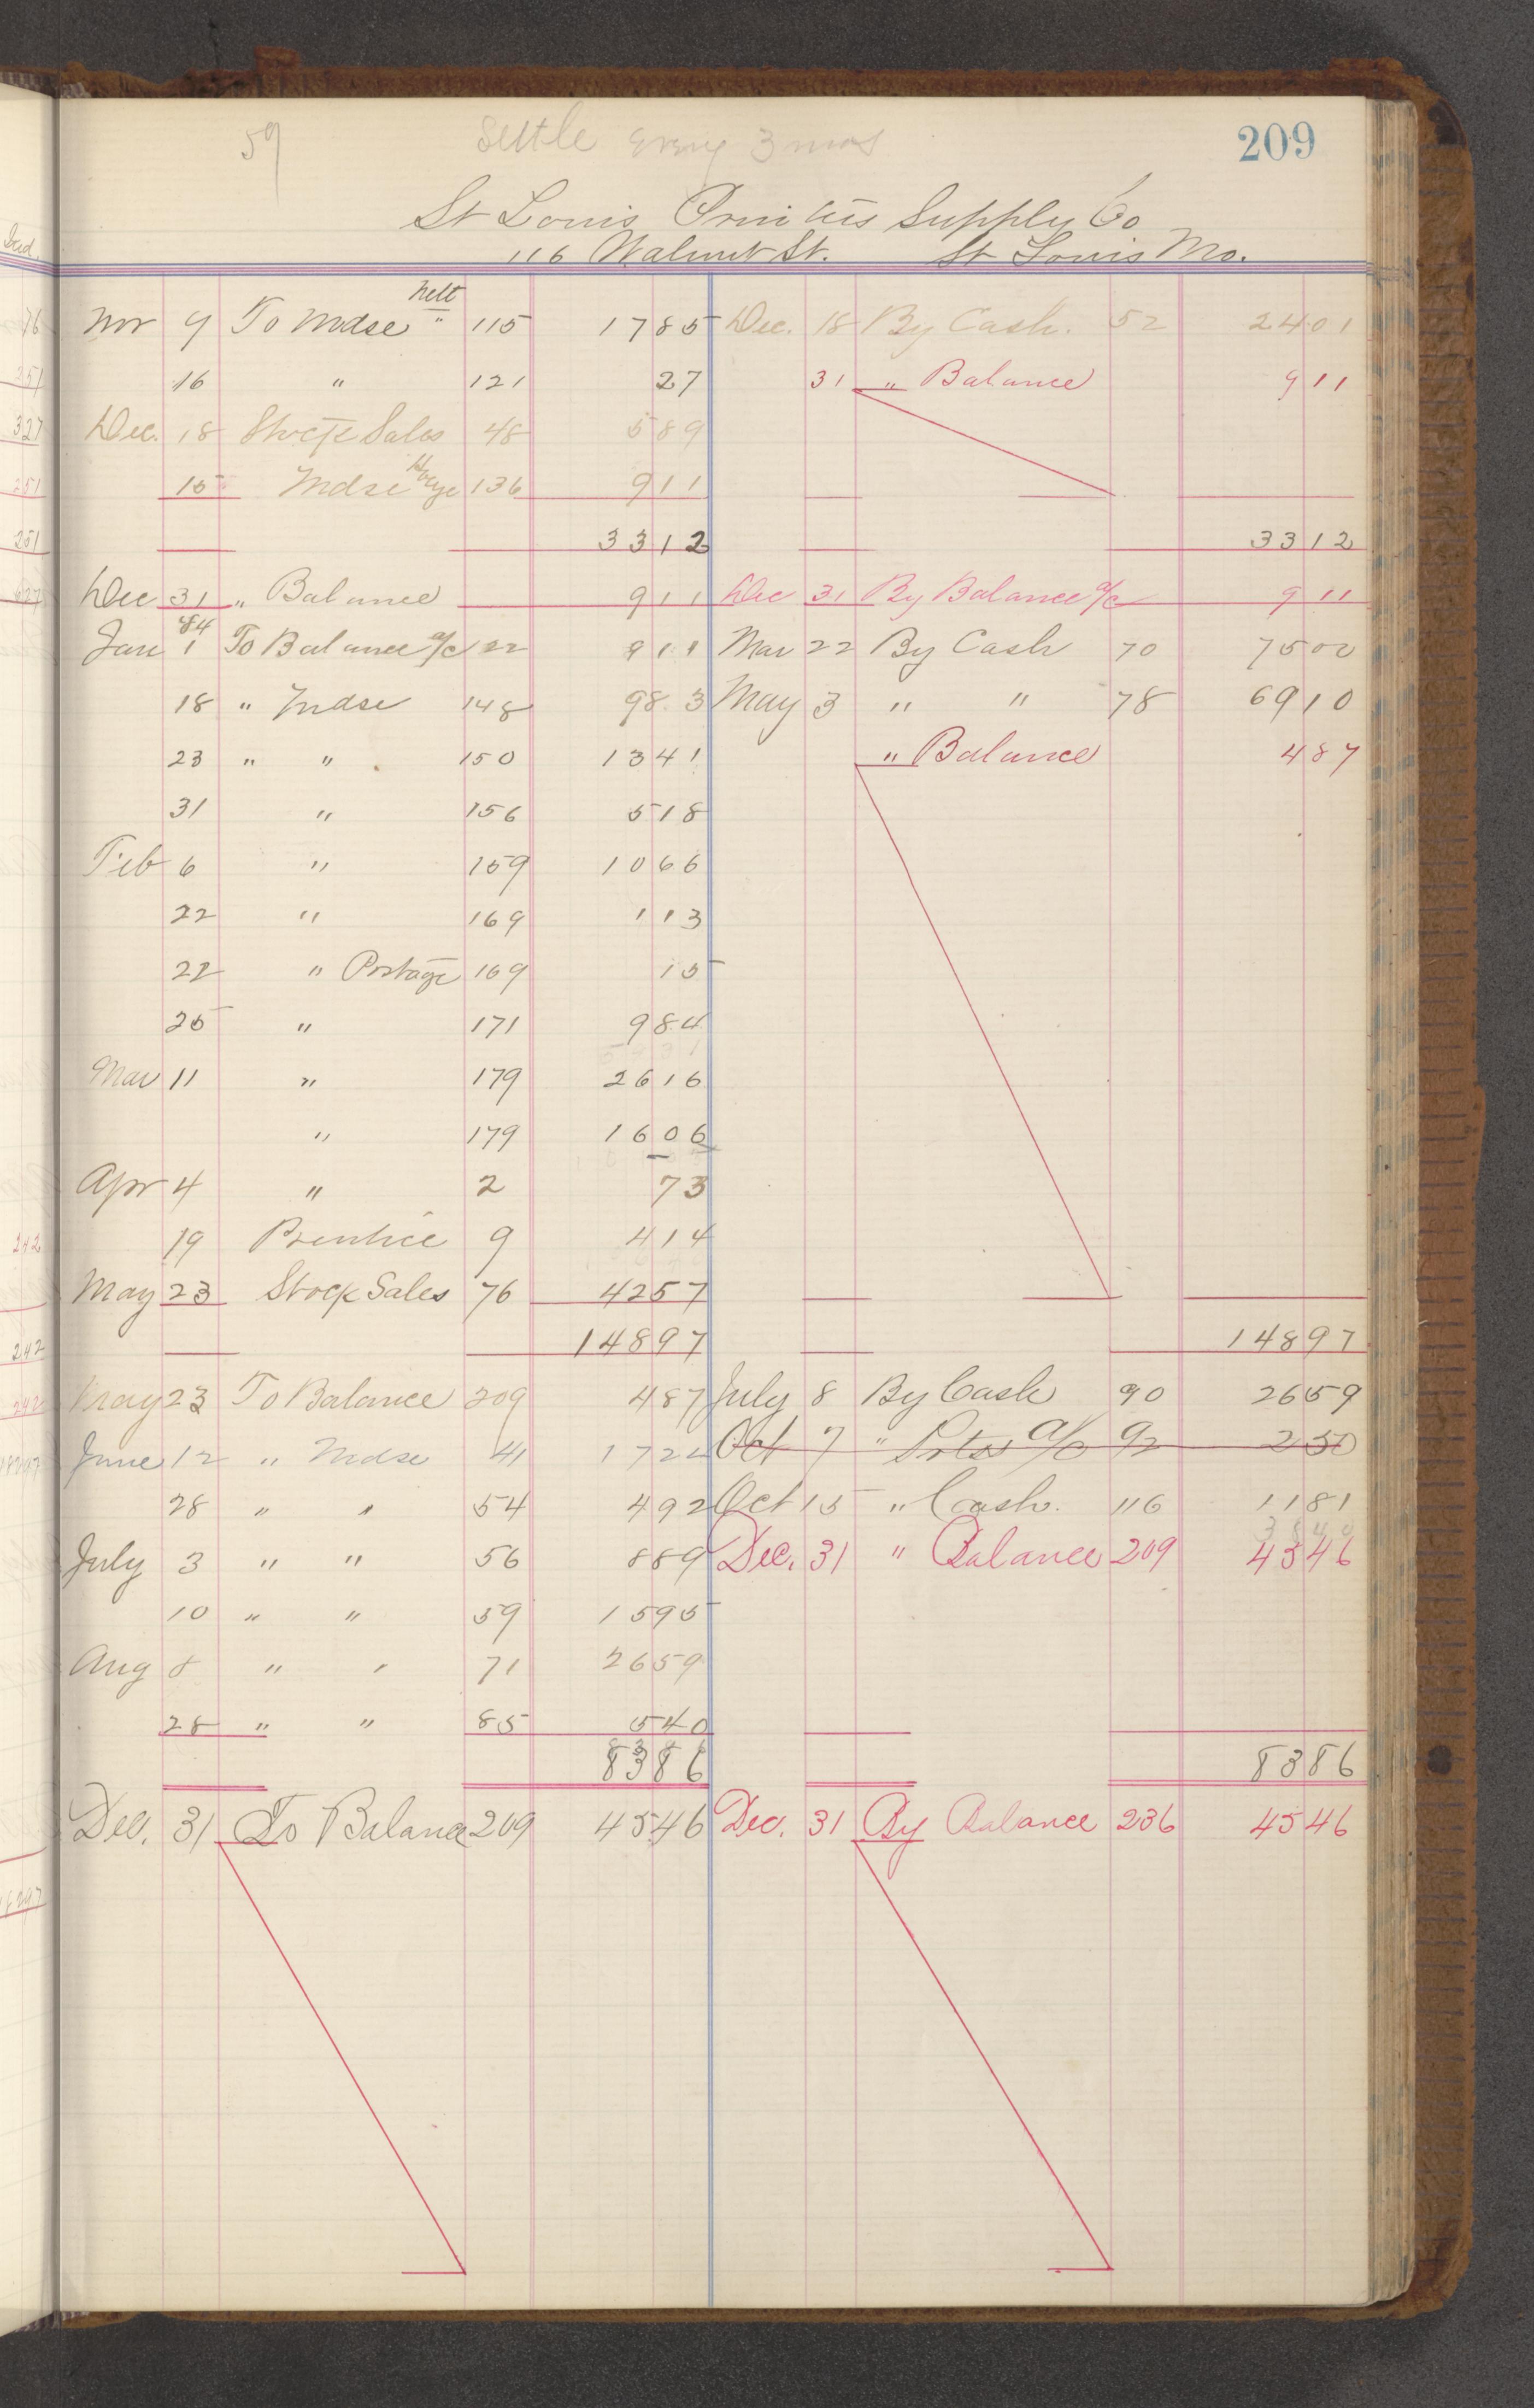 59 Settle Every 3 mos 209
St Louis Printers Supply Co
116 Walnut St. St Louis Mo.
Nov 9 To Mdse Nett " 115 1785 Dec. 18 By Cash. 52 2401
16 " 121 27 31 " Balance 911
Dec. 18 Stock Sales 48 589
15 Mdse 136 911
3312 3312
Dec 31 " Balance 911 Dec 31 By Balance a/c 911
Jan 84 1 To Balance a/c 22 911 Mar 22 By Cash 70 7500
18 " Mdse 148 983 May 3 " " 78 6910
23 " " 150 1341 " Balance 487
31 " 156 518
Feb 6 " 159 1066
22 " 169 113
22 " Postage 169 15
25 " 171 984
Mar 11 " 179 2616
" 179 1606
Apr 4 " 2 73
19 Prentice 9 414
May 23 Stock Sales 76 4257
14897 14897
May 23 To Balance 209 487 July 8 By Cash 90 2659
June 12 " Mdse 41 1724 Oct 7 " a/c 92 250
28 " " 54 492 Oct 15 " Cash. 116 1181
3840
July 3 " " 56 889 Dec. 31 " Balance 209 4546
10 " " 59 1595
Aug 8 " " 71 2659
28 " " 85 540
8386 8386
Dec. 31 To Balance 209 4546 Dec. 31 By Balance 236 4546